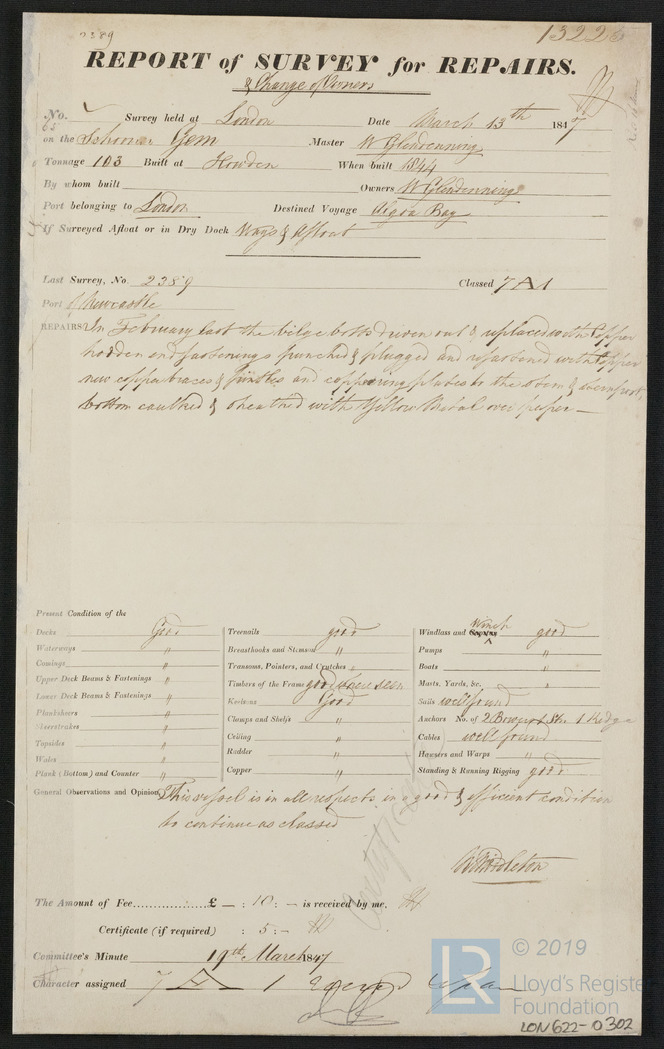 2389
13226
REPORT of SURVEY for REPAIRS.
& Change of Owners
No. Survey held at London Date March 13th 1847
on the Schooner Gem Master W Glendenning
Tonnage 103 Built at Howden When built 1844
By whom built Owners W Glendenning
Port belonging to London Destined Voyage Algoa Bay
If Surveyed Afloat or in Dry Dock Ways & Afloat
Last Survey, No. 2389 Classed 7 A 1
Port of Newcastle
REPAIRS In February last the bilge bolts driven out & replaced with Copper
hooden end fastenings punched & plugged and refastened with Copper
new copper braces & pintles and coppering plates to the stem & sternpost,
bottom caulked & sheathed with Yellow Metal over paper —
Present Condition of the
Decks Good Treenails good Windlass and Capstan Winch good
Waterways " Breasthooks and Stemson " Pumps "
Comings " Transoms, Pointers, and Crutches " Boats "
Upper Deck Beams & Fastenings " Timbers of the Frame good where seen Masts, Yards, &c. "
Lower Deck Beams & Fastenings " Keelsons Good Sails well found
Planksheers " Clamps and Shelfs " Anchors No. of 2 Bowers 1 Str. 1 Kedge
Sheerstrakes " Ceiling " Cables well found
Topsides " Rudder " Hawsers and Warps "
Wales " Copper " Standing & Running Rigging good
Plank (Bottom) and Counter "
General Observations and Opinion This vessel is in all respects in a good & efficient condition
to continue as classed
W Middleton
Certificate
The Amount of Fee £ — : 10 : — is received by me.
Certificate (if required) : 5 : —
Committee's Minute 19th March 1847
Character assigned 7 A 1
LR
© 2019
Lloyd's Register
Foundation
LON622-0302